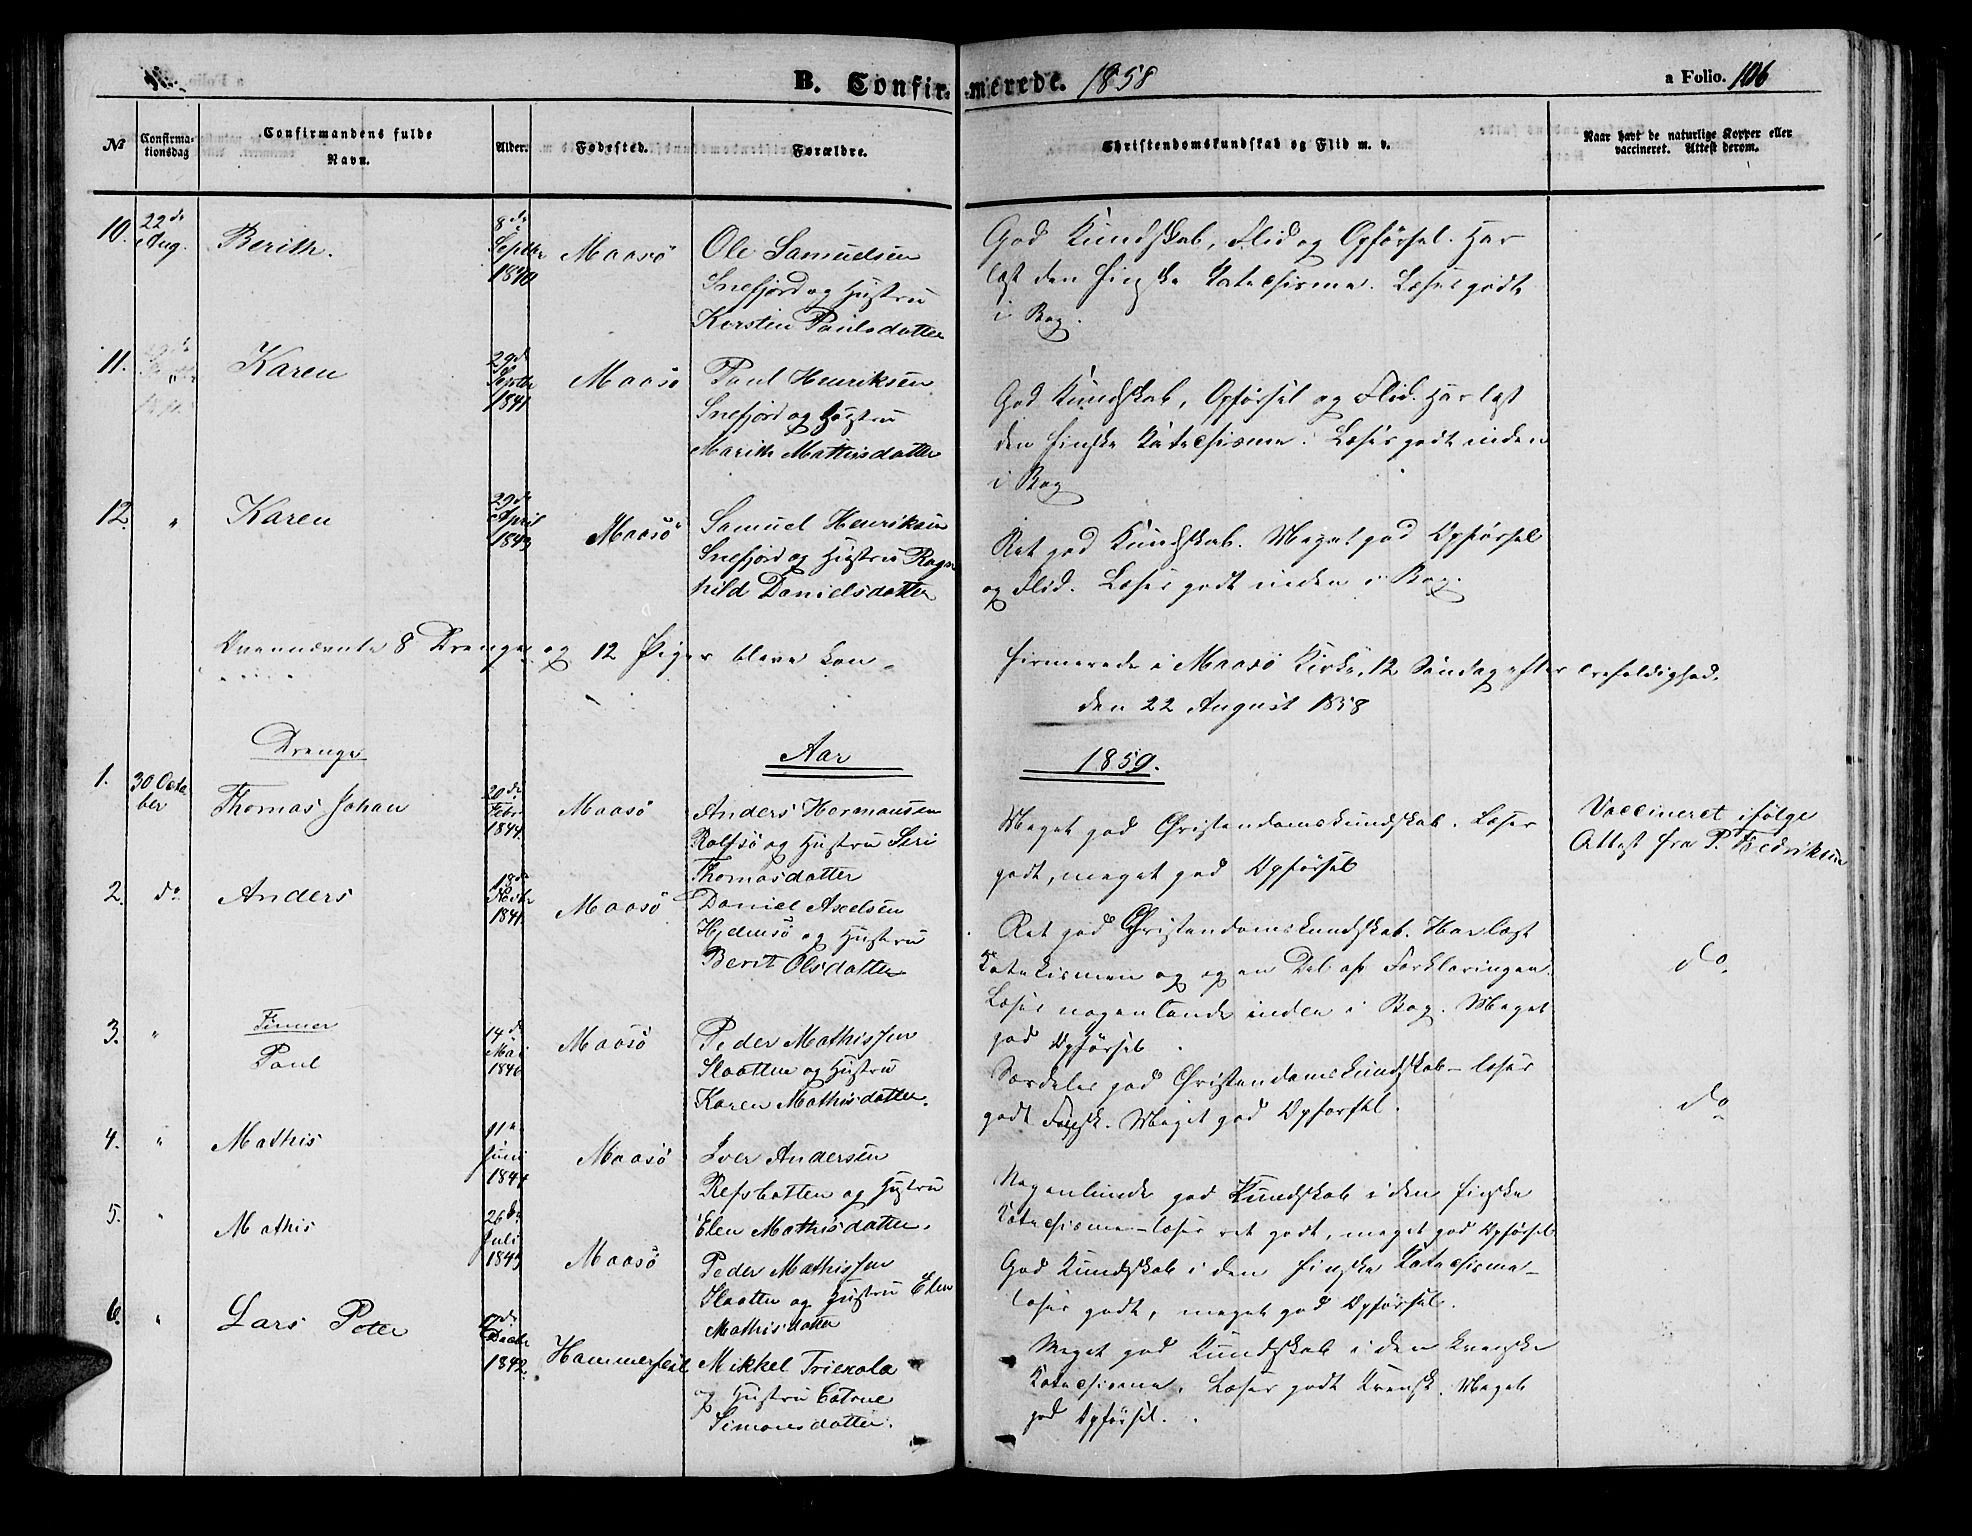 B. Confirmerede. 1858
a Folio. 106
№ Confirmationsdag Confirmandens fulde Navn. Alder. Fødested. Forældre. Christendomskundskab og Flid m. v. Naar havt de naturlige Kopper eller vaccineret. Attest derom.
10. 22de Aug. Berith. 8de Septbr 1840 Maasö Ole Samuelsen
Snefjord og Hustru
Kersten Paulsdatter
God Kundskab, Flid og Opförsel. Har
læst den finske Katechisme. Læser godt
i Bog.
11. Karen 29de Septbr 1841 Maasö Paul Henriksen
Snefjord og Hustru
Marith Mathisdatter
God Kundskab, Opförsel og Flid. Har læst
den finske Katechisme. Læser godt inden
i Bog
12. " Karen 29de April 1843 Maasö Samuel Henriksen
Snefjord og Hustru Ragn
hild Danielsdatter
Ret god Kundskab. Meget god Opförsel
og Flid. Læser godt inden i Bog.
Ovennævnte 8 Drenge og 12 Piger bleve con-
firmerede i Maasö Kirke, 12 Söndag efter Trefoldighed.
den 22 August 1858
Drenge
Aar 1859.
1. 30 October Thomas Johan 20de Febr 1844 Maasö Anders Hermansen
Rolfsö og Hustru Siri
Thomasdatter
Meget god Christendomskundskab. Læser
godt, meget god Opförsel
Vaccineret ifölge
Attest fra P. Fredriksen
2. do Anders 18de 1841 Maasö Daniel Axelsen
Hjelmsö og Hustru
Berit Olsdatter
Ret god Christendomskundskab. Har læst
Katekismen og og en Del af Forklaringen.
Læser nogenlunde inden i Bog. Meget
god Opförsel.
do.
Finner
3. " Paul 14de Mai 1840 Maasö Peder Mathissen
Slaatten og Hustru
Karen Mathisdatter.
Særdeles god Christendomskundskab - læser
godt Finsk. Meget god Opförsel.
do
4. " Mathis 11te Juni 1844 Maasö Iver Andersen
Refsbotten og Hustru
Elen Mathisdatter.
Nogenlunde god Kundskab i den finske
Katechisme - læser ret godt, meget god Opförsel
5. " Mathis 26de Juli 1843 Maasö Peder Mathissen
Slaatten og Hustru Elen
Mathisdatter
God Kundskab i den finske Katechisme -
læser godt, meget god Opförsel.
6. " Lars Peter Decbr 1842 Hammerfest Mikkel
og Hustru Catrine
Simonsdatter.
Meget god Kundskab i den kvenske
Katechisme. Læser godt Kvensk. Meget
god Opförsel.